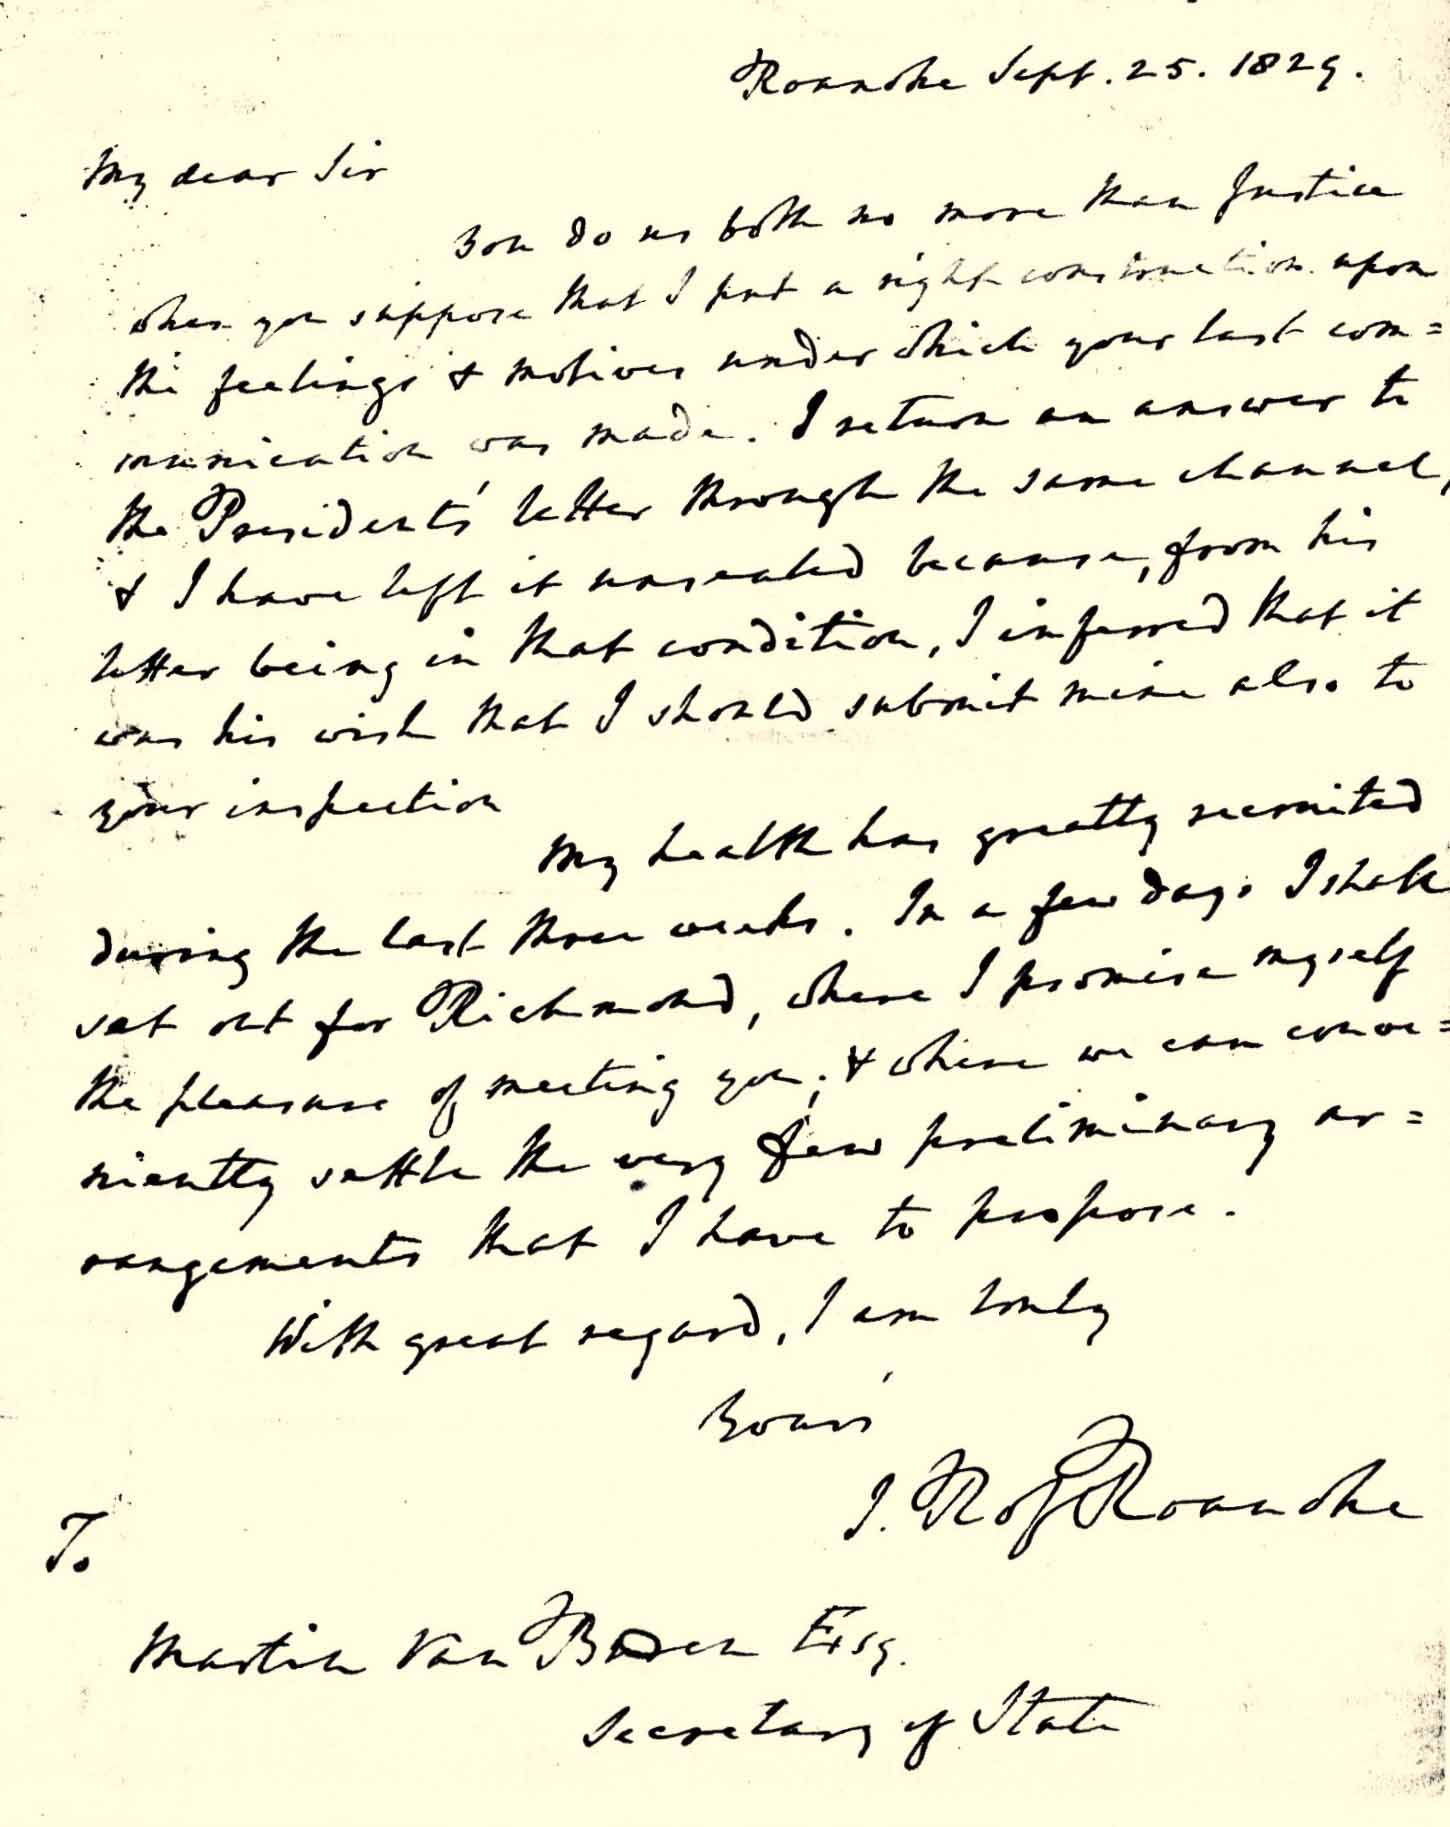 Roanoke Sept. 25. 1829.
My dear Sir
You do us both no more than Justice
when you suppose that I put a right construction upon
the feelings & motives under which your last com=
munication was made. I return an answer to
the President's letter through the same channel,
& I have left it unsealed because, from his
letter being in that condition, I inferred that it
was his wish that I should submit mine also to
your inspection
My health has greatly recruited
during the last three weeks. In a few days I shall
set out for Richmond, where I promise myself
the pleasure of meeting you; & where we can conve=
niently settle the very few preliminary ar=
rangements that I have to propose.
With great regard, I am truly
Yours
J. R of Roanoke
To
Martin Van Buren Esq.
Secretary of State